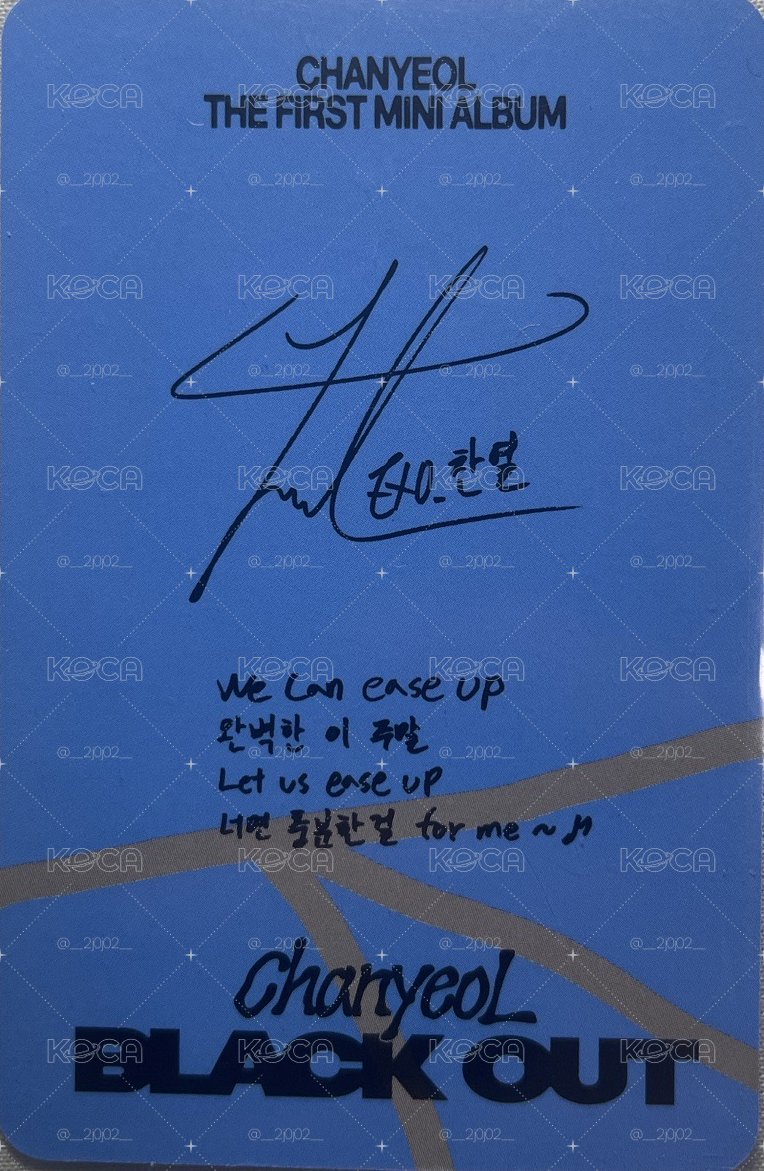 CHANYEOL
THE FIRST MINI ALBUM
EXO_찬열
We can ease up
완벽한 이 주말
Let us ease up
너면 충분한걸 for me ~ ♫
ChanyeoL
BLACK OUT
KOCA
@__2jpj02__